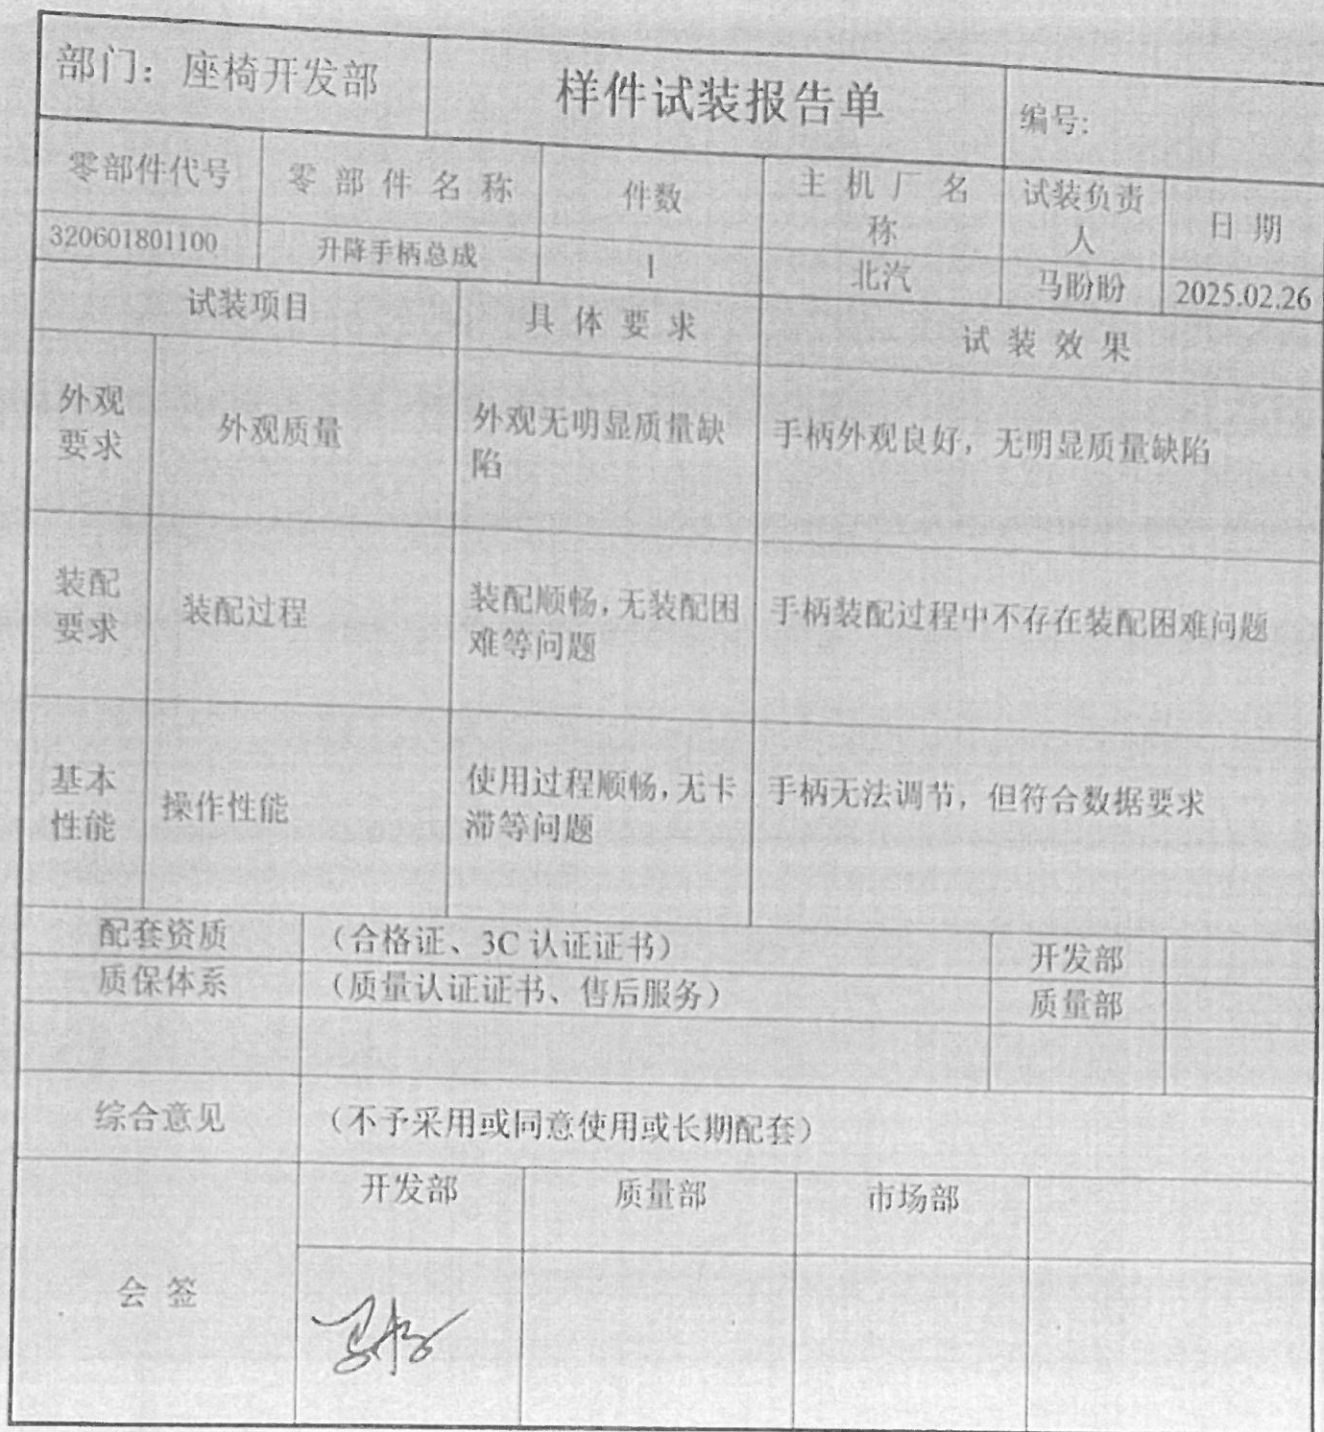 部门：座椅开发部
样件试装报告单
编号:
零部件代号
零部件名称
件数
主机厂名
称
试装负责
人
日期
320601801100
升降手柄总成
1
北汽
马盼盼
2025.02.26
试装项目
具体要求
试装效果
外观
要求
外观质量
外观无明显质量缺
陷
手柄外观良好，无明显质量缺陷
装配
要求
装配过程
装配顺畅，无装配困
难等问题
手柄装配过程中不存在装配困难问题
基本
性能
操作性能
使用过程顺畅，无卡
滞等问题
手柄无法调节，但符合数据要求
配套资质
（合格证、3C 认证证书）
开发部
质保体系
（质量认证证书、售后服务）
质量部
综合意见
（不予采用或同意使用或长期配套）
会签
开发部
质量部
市场部